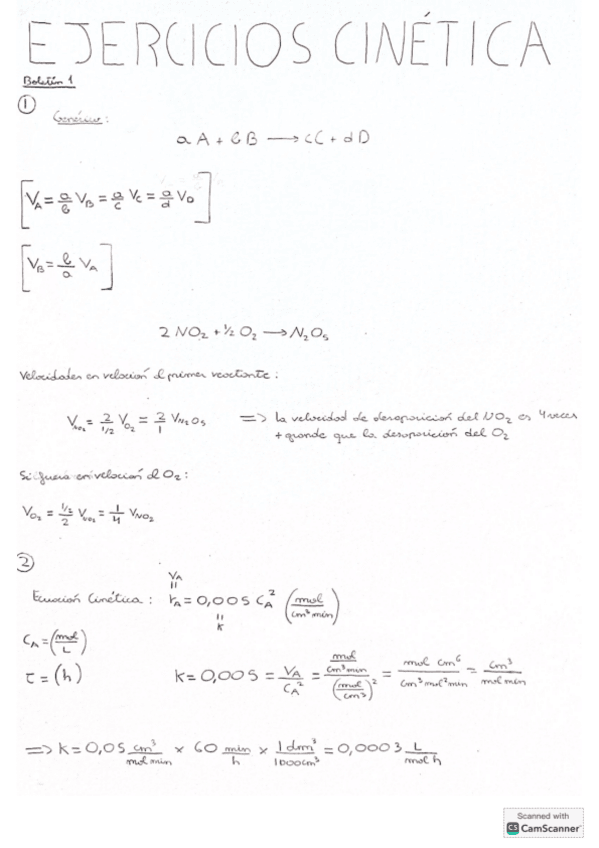 EJERCICIOS CINÉTICA
Boletín 1
①
Genérico:
aA + bB → cC + dD
[V_A = a/b V_B = a/c V_C = a/d V_D]
[V_B = b/a V_A]
2 NO₂ + ½ O₂ → N₂O₅
Velocidades en relación al primer reactante:
V_NO₂ = 2/(1/2) V_O₂ = 2/1 V_N₂O₅ => la velocidad de desaparición del NO₂ es 4 veces
+ grande que la desaparición del O₂
Si fuera en relación al O₂:
V_O₂ = (1/2)/2 V_NO₂ = 1/4 V_NO₂
②
V_A
=
Ecuación Cinética: r_A = 0,005 C_A² (mol/cm³ min)
=
k
C_A = (mol/L)
τ = (h)
k = 0,005 = V_A/C_A² = (mol/cm³ min)/(mol/cm³)² = mol cm⁶/cm³ mol² min = cm³/mol min
=> k = 0,05 cm³/mol min × 60 min/h × 1 dm³/1000 cm³ = 0,0003 L/mol h
Scanned with
CS CamScanner